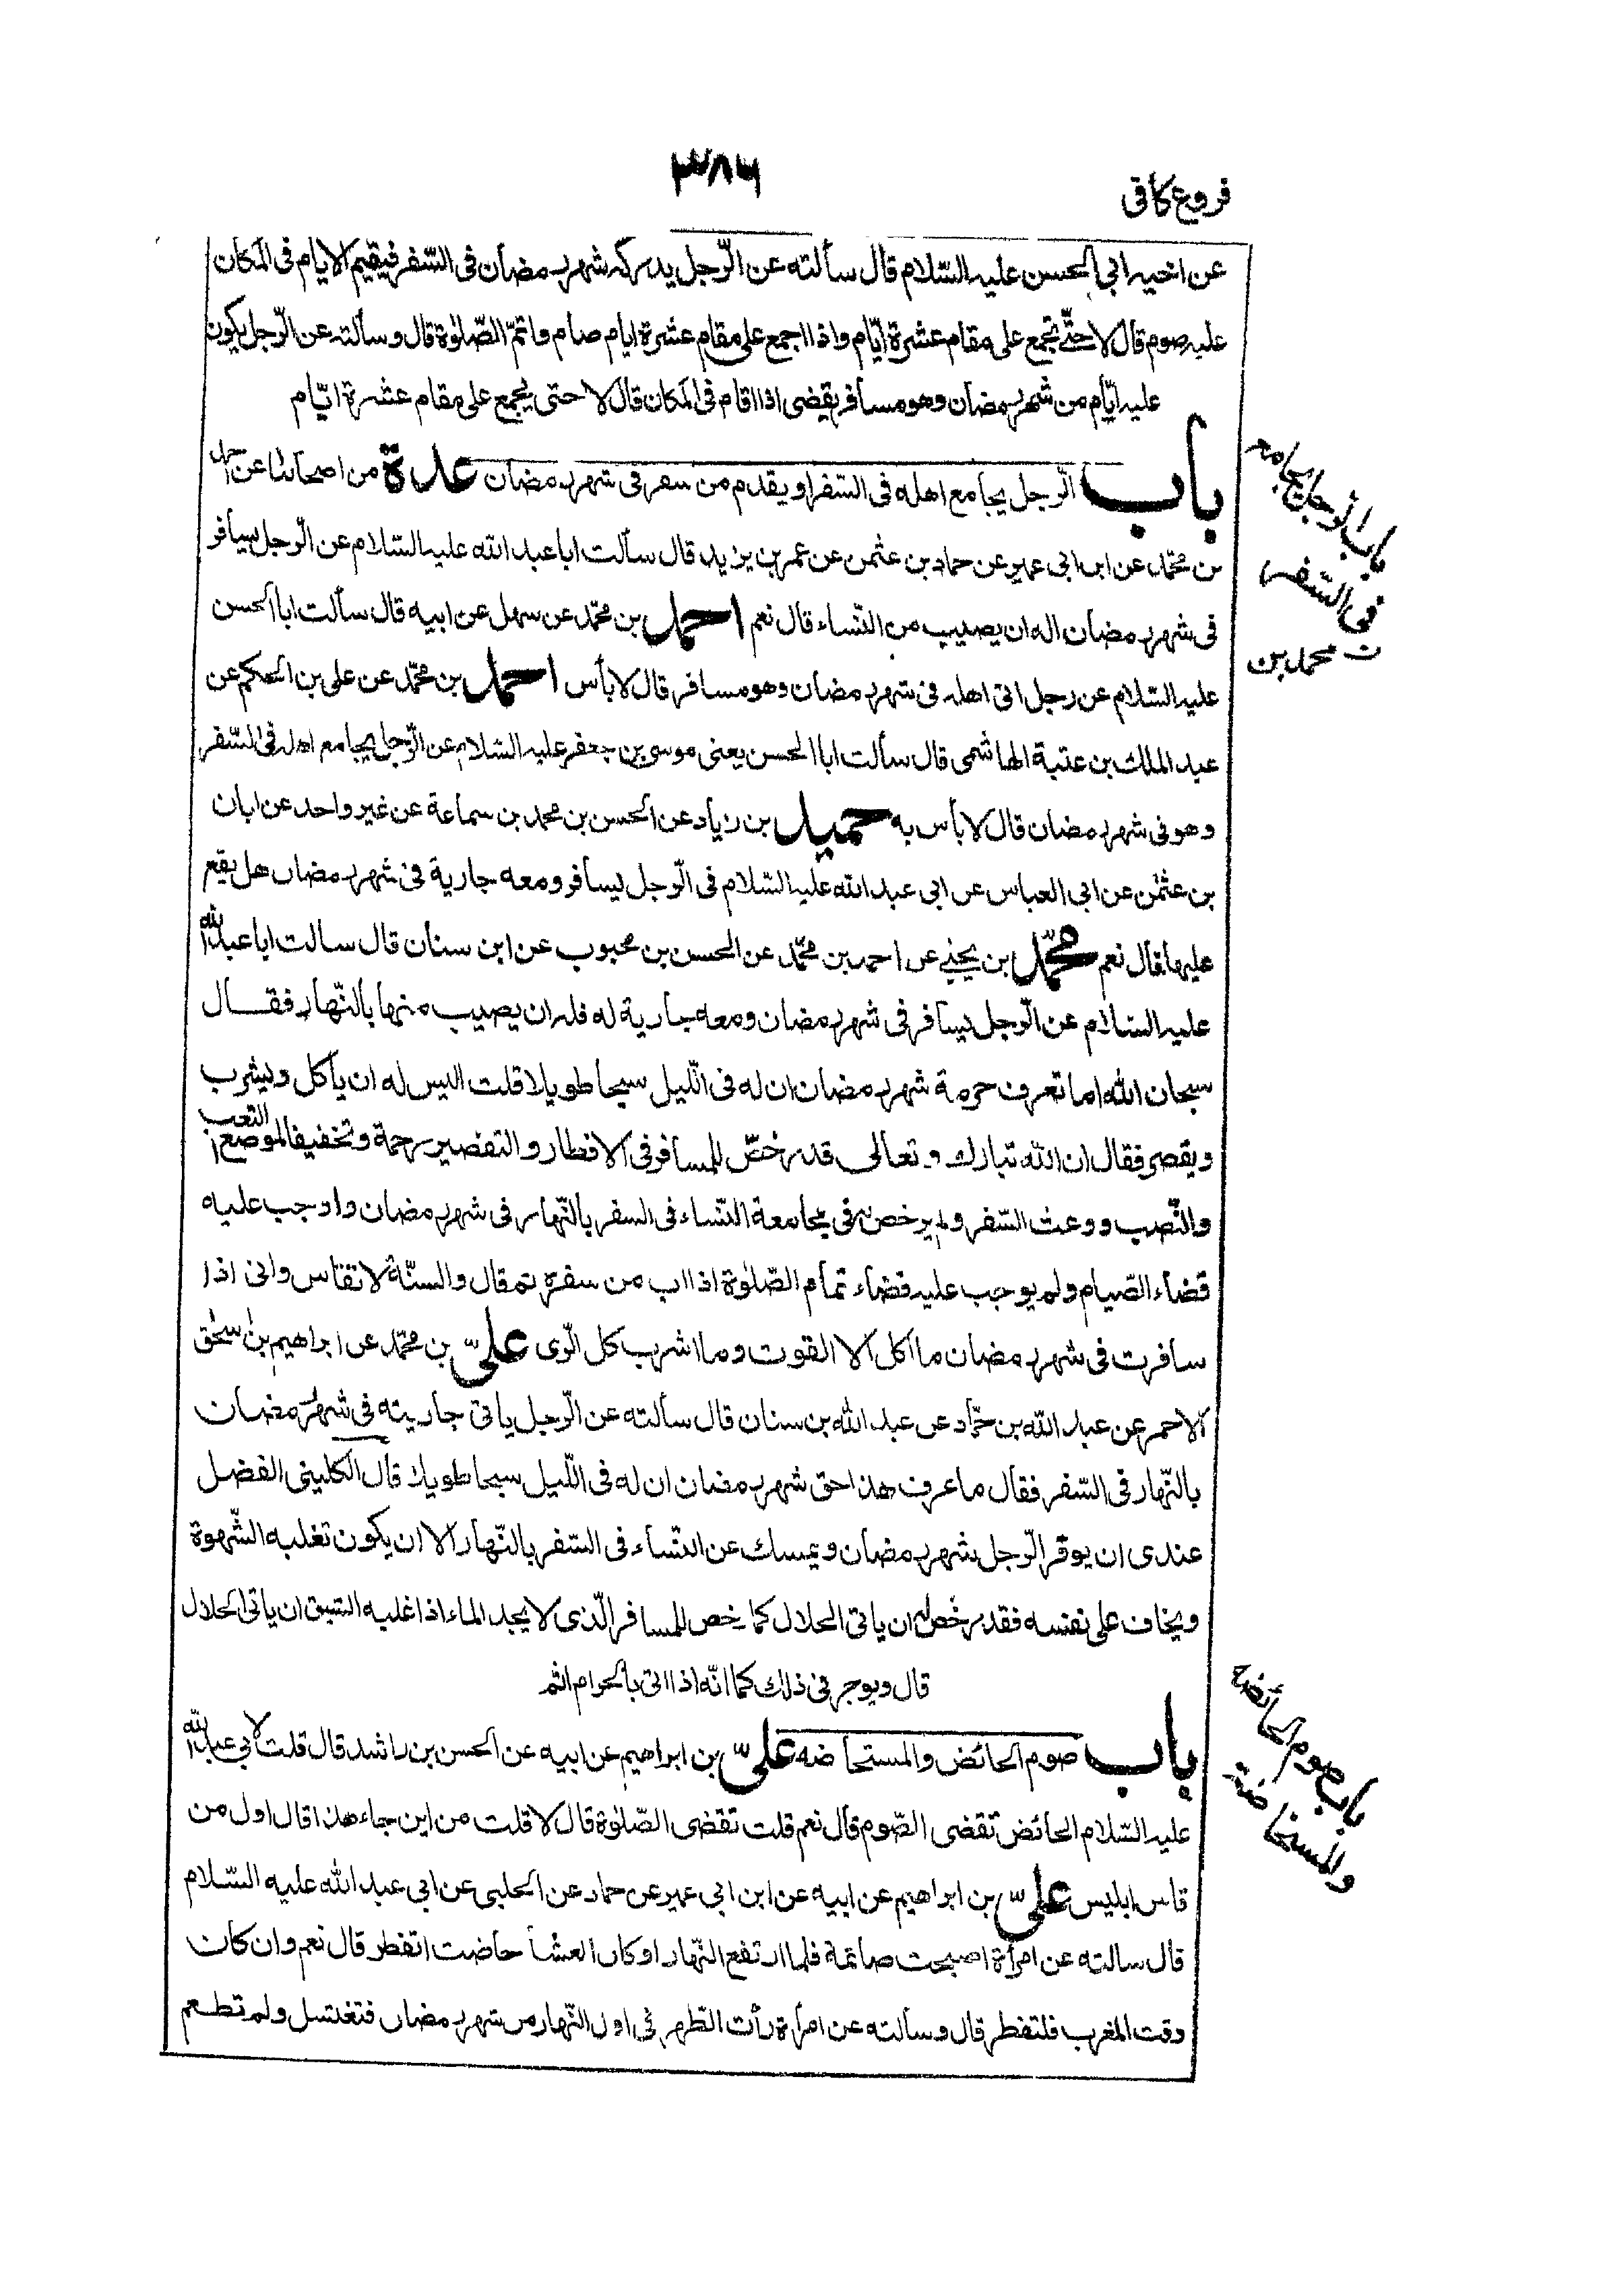 فروع كافى
٣٨٦
عن اخيه ابى الحسن عليه السّلام قال سألته عن الرّجل يدركه شهر رمضان فى السّفر فيقيم الايام فى المكان
عليه صوم قال لا حتّى يجمع على مقام عشرة ايّام واذا اجمع على مقام عشرة ايام صام واتمّ الصّلوٰة قال وسألته عن الرّجل يكون
عليه ايّام من شهر رمضان وهو مسافر يقضى اذا اقام فى المكان قال لا حتى يجمع على مقام عشرة ايّام
باب الرّجل يجامع اهله فى السّفر او يقدم من سفر فى شهر رمضان عدة من اصحابنا عن احمد
بن محمّد عن ابن ابى عمير عن حماد بن عثمن عن عمر بن يزيد قال سألت ابا عبد الله عليه السّلام عن الرّجل يسافر
فى شهر رمضان اله ان يصيب من النّساء قال نعم احمد بن محمّد عن سهل عن ابيه قال سألت ابا الحسن
عليه السّلام عن رجل اتى اهله فى شهر رمضان وهو مسافر قال لا بأس احمد بن محمّد عن على بن الحكم عن
عبد الملك بن عتبة الهاشمى قال سألت ابا الحسن يعنى موسى بن جعفر عليه السّلام عن الرّجل يجامع اهله فى السّفر
وهو فى شهر رمضان قال لا بأس به حميد بن زياد عن الحسن بن محمد بن سماعة عن غير واحد عن ابان
بن عثمٰن عن ابى العباس عن ابى عبد الله عليه السّلام فى الرّجل يسافر ومعه جارية فى شهر رمضان هل يقع
عليها قال نعم محمّد بن يحيٰى عن احمد بن محمّد عن الحسن بن محبوب عن ابن سنان قال سالت ابا عبد الله
عليه السّلام عن الرّجل يسافر فى شهر رمضان ومعه جارية له فله ان يصيب منها بالنّهار فقال
سبحان الله اما تعرف حرمة شهر رمضان ان له فى اللّيل سبحا طويلا قلت اليس له ان يأكل ويشرب
ويقصر فقال ان الله تبارك وتعالى قد رخّص للمسافر فى الافطار والتقصير رحمة وتخفيفا لموضع التعب
والنّصب ووعث السّفر ولم يرخص له فى مجامعة النّساء فى السفر بالنّهار فى شهر رمضان واوجب عليه
قضاء الصّيام ولم يوجب عليه قضاء تمام الصّلوٰة اذا اب من سفره ثم قال والسنّة لا تقاس وانى اذا
سافرت فى شهر رمضان ما اكل الا القوت وما اشرب كل الرّى علىّ بن محمّد عن ابراهيم بن اسحٰق
الاحمر عن عبد الله بن حمّاد عن عبد الله بن سنان قال سألته عن الرّجل ياتى جاريته فى شهر رمضان
بالنّهار فى السّفر فقال ما عرف هذا حق شهر رمضان ان له فى اللّيل سبحا طويلا قال الكلينى الفضل
عندى ان يوقر الرّجل شهر رمضان ويمسك عن النّساء فى السّفر بالنّهار الا ان يكون تغلبه الشّهوة
ويخاف على نفسه فقد رخّص له ان ياتى الحلال كما رخص للمسافر الّذى لا يجد الماء اذا غلبه الشبق ان ياتى الحلال
قال ويوجر فى ذلك كما انّه اذا اتى بالحرام اثم
باب صوم الحائض والمستحاضه علىّ بن ابراهيم عن ابيه عن الحسن بن راشد قال قلت لابى عبد الله
عليه السّلام الحائض تقضى الصّوم قال نعم قلت تقضى الصّلوٰة قال لا قلت من اين جاء هذا قال اول من
قاس ابليس علىّ بن ابراهيم عن ابيه عن ابن ابى عمير عن حماد عن الحلبى عن ابى عبد الله عليه السّلام
قال سالته عن امرأة اصبحت صائمة فلما ارتفع النّهار او كان العشأ حاضت اتفطر قال نعم وان كان
وقت المغرب فلتفطر قال وسألته عن امرأة رأت الطّهر فى اول النّهار من شهر رمضان فتغتسل ولم تطعم
باب الرجل يجامع
فى السّفر
ن محمد بن
باب صوم الحائضه
والمستحاضة